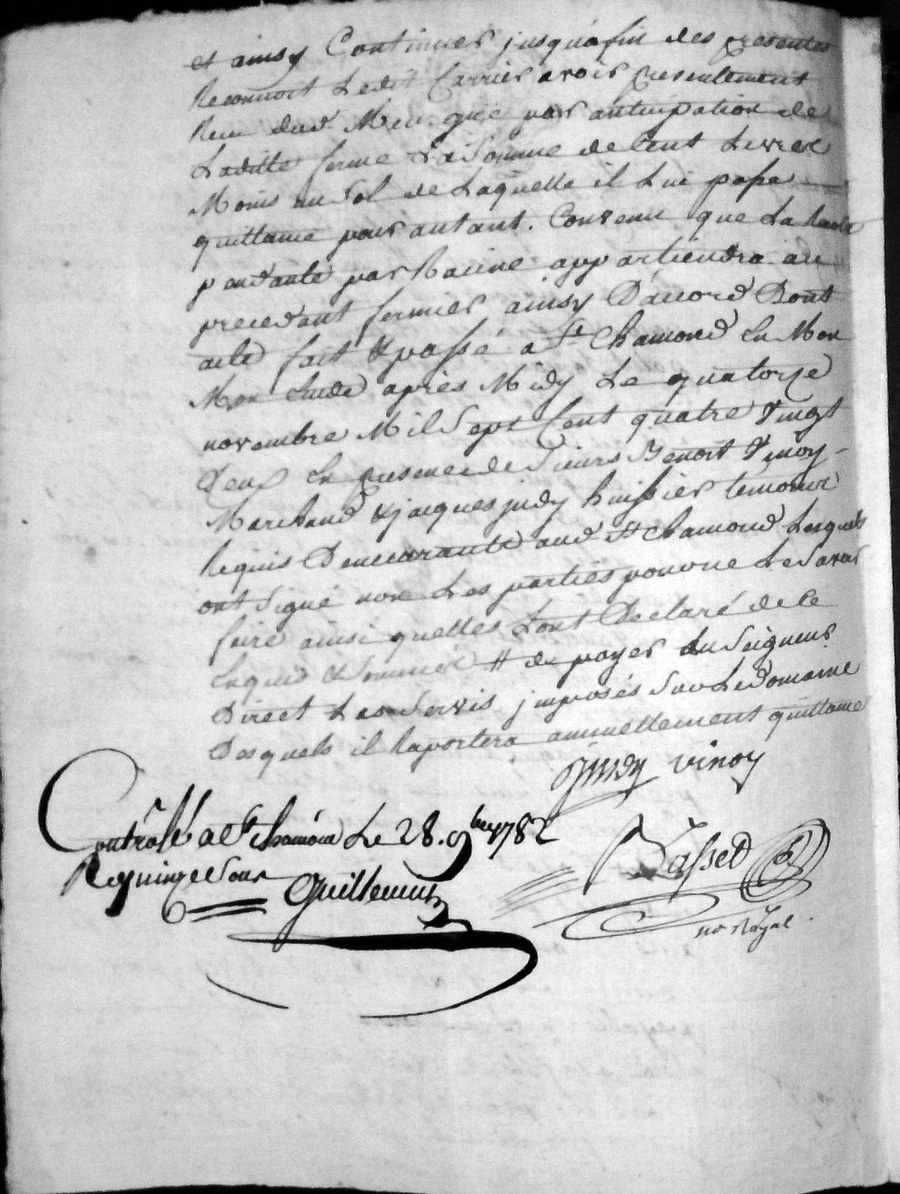 et ainsy Continuer jusqu'a fin des presentes
Reconnoit Ledit Carrier avoir presentement
Receu dud. par anticipation de
Laditte ferme La Somme de Cent Livres
Moins un Sol de Laquelle il Lui passe
quittance pour autant. Convenu que La
pendante par Racine appartiendra au
precedant fermier ainsy D'accord Dont
acte fait & passé a St Chamond En Mon
Mon Etude apres Midy Le quatorze
novembre Mil Sept Cent quatre Vingt
Deux En presence de Sieurs Benoit Vinoy
Marchand & jacques judy huissier temoins
Requis Demeurants aud. St Chamond Lesquels
ont Signé non Les parties pour ne Le Savoir
faire ainsi quelles L'ont Declaré de Ce
Enquis & Sommés # de payer Au Seigneur
Direct Les Servis jmposés Sur Le Domaine
Desquels il Raportera annuellement quittance
judy vinoy
Controllé a St chamond Le 28. 9bre 1782
R quinze Sous
Guillemin
Basset
no Royal